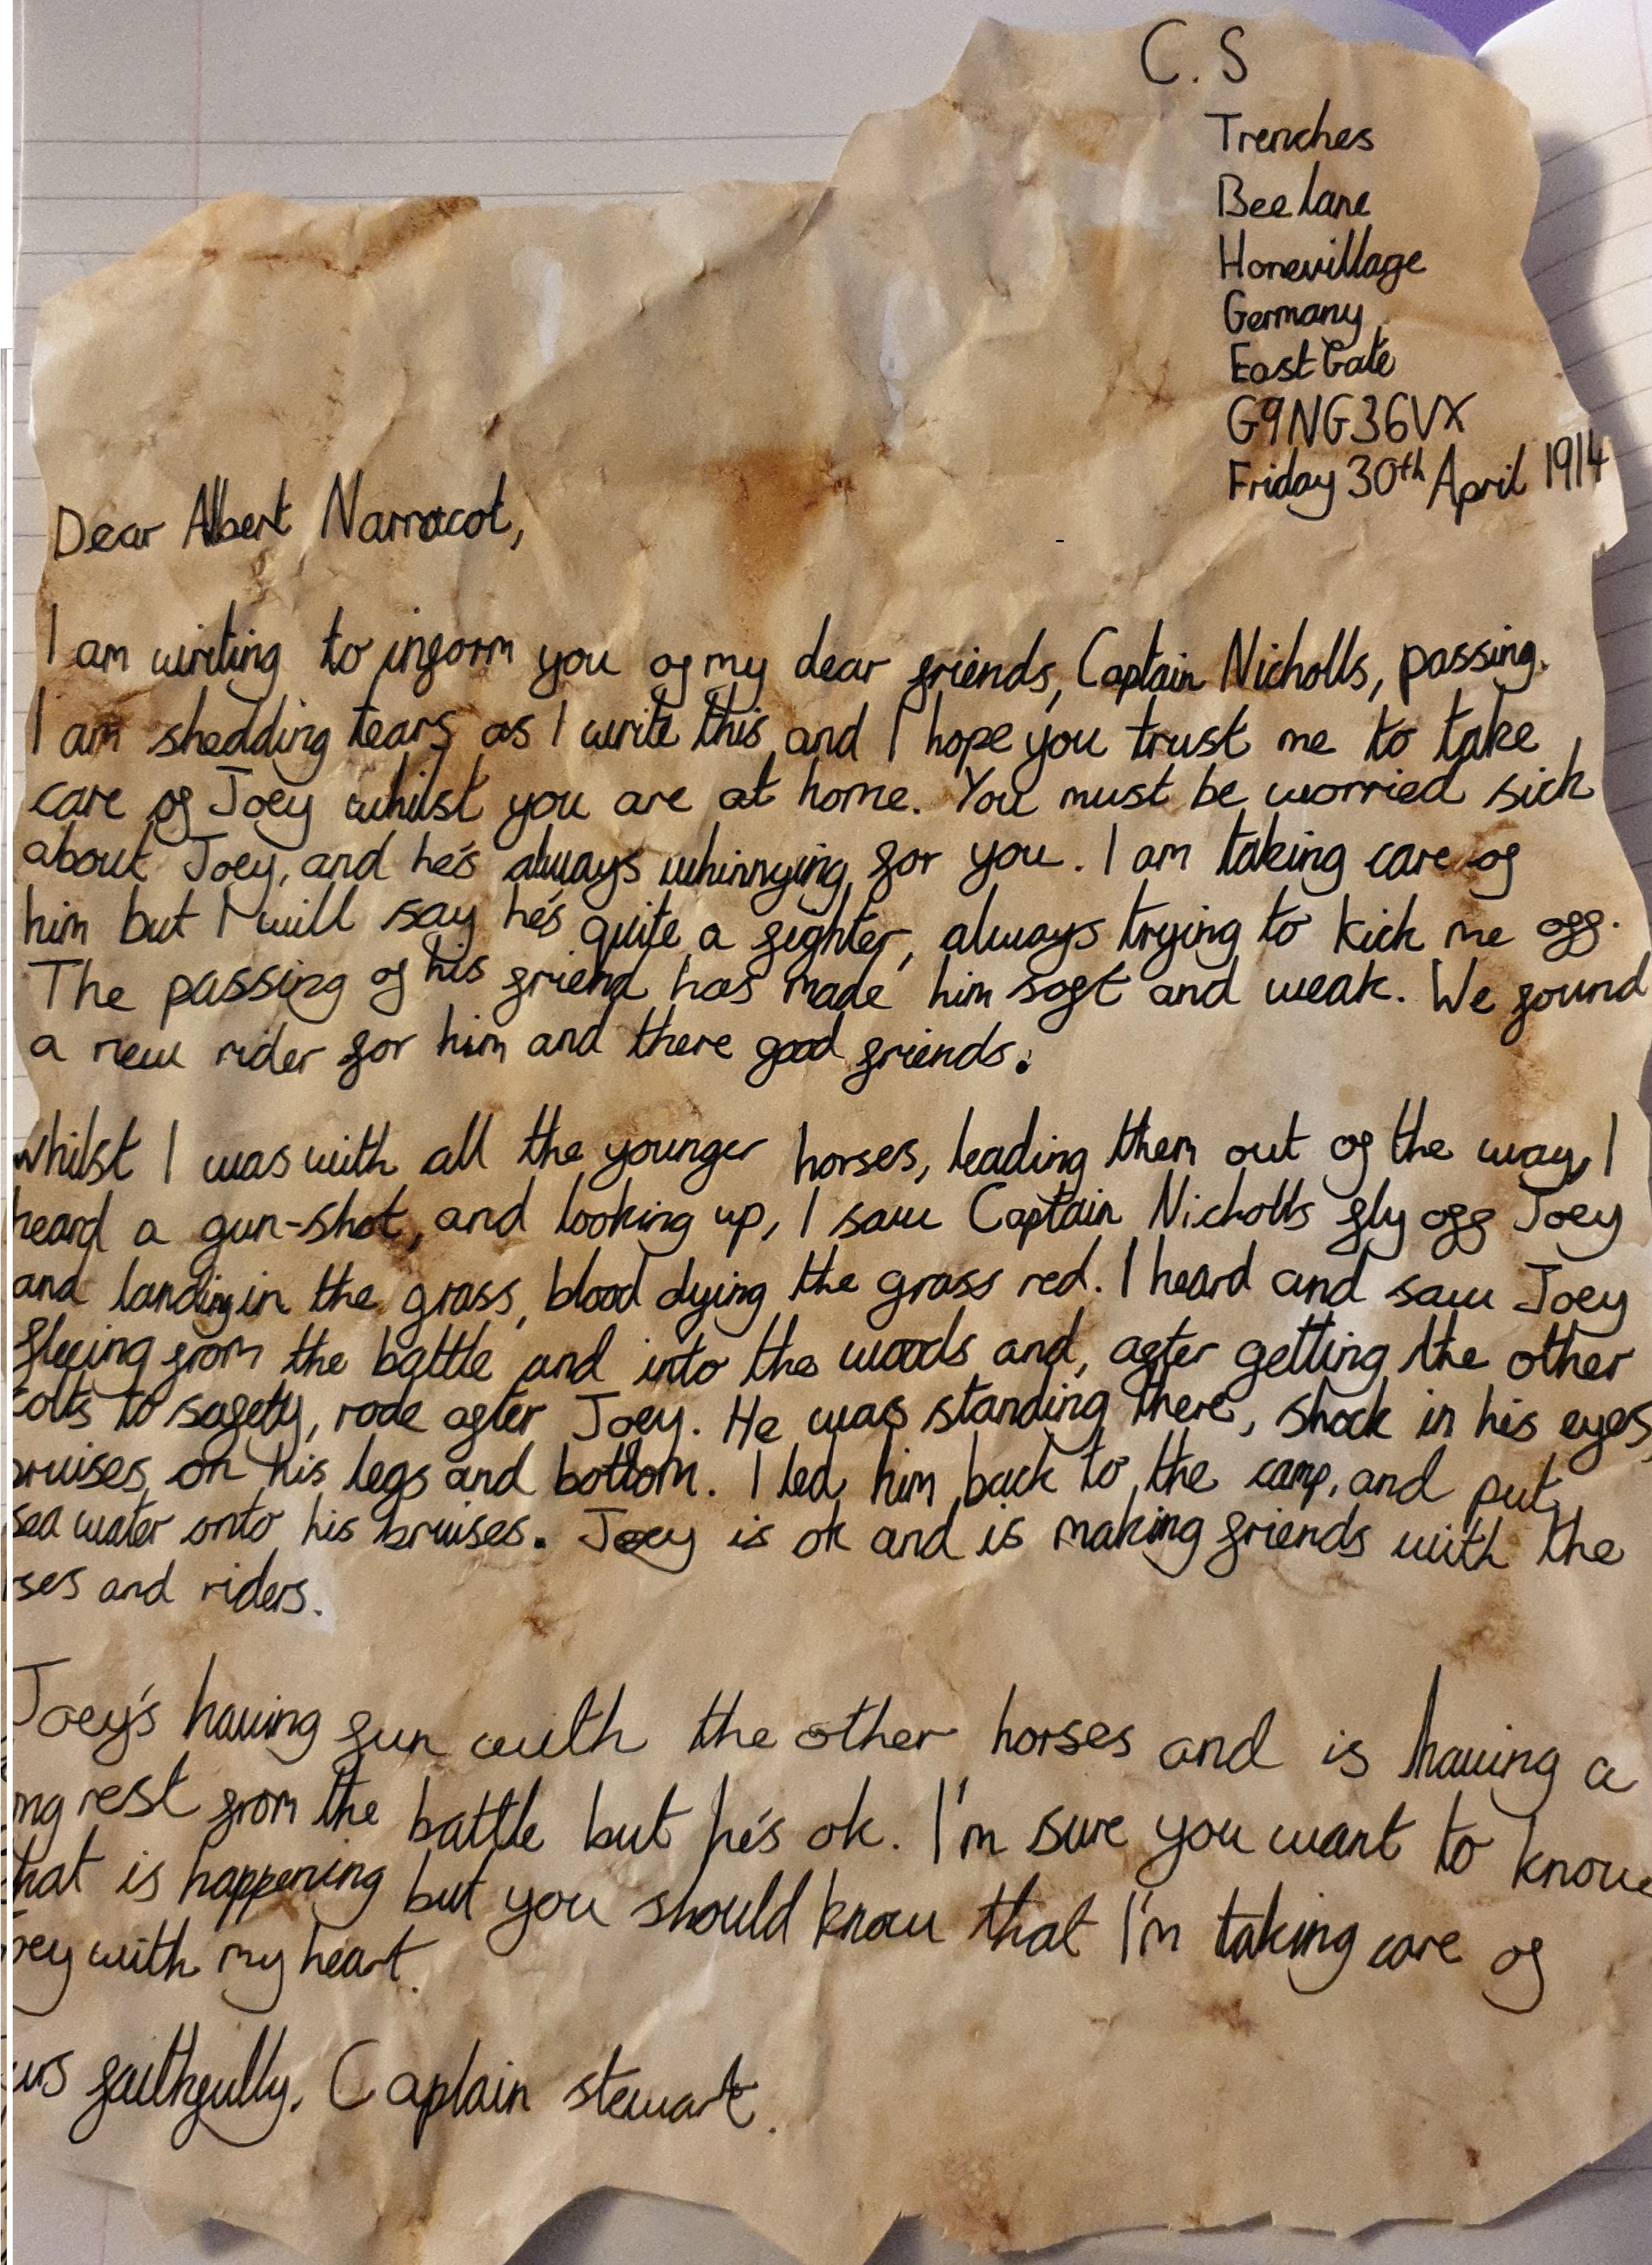 C. S
Trenches
Bee lane
Honevillage
Germany
East Gate
G9NG36VX
Friday 30th April 1914
Dear Albert Narracot,
I am writing to inform you of my dear friends, Captain Nicholls, passing.
I am shedding tears as I write this and I hope you trust me to take
care of Joey whilst you are at home. You must be worried sick
about Joey, and he's always whinnying for you. I am taking care of
him but I will say he's quite a fighter, always trying to kick me off.
The passing of his friend has made him soft and weak. We found
a new rider for him and there good friends.
whilst I was with all the younger horses, leading them out of the way, I
heard a gun-shot, and looking up, I saw Captain Nicholls fly off Joey
and landing in the grass, blood dying the grass red. I heard and saw Joey
fleeing from the battle and into the woods and, after getting the other
colts to safety, rode after Joey. He was standing there, shock in his eyes,
bruises on his legs and bottom. I led him back to the camp, and put
sea water onto his bruises. Joey is ok and is making friends with the
rses and riders.
Joey's having fun with the other horses and is having a
ng rest from the battle but he's ok. I'm sure you want to know
hat is happening but you should know that I'm taking care of
oey with my heart.
urs faithfully, Captain stewart.